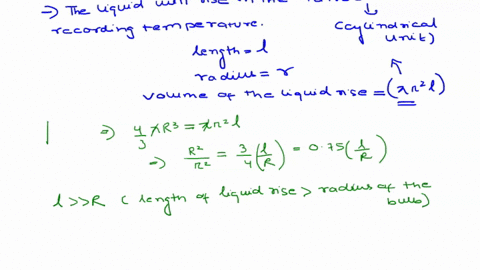 ⇒) The liquid will rise in the
recording temperature.
(cylindrical
unit)
length = l
radius = r
volume of the liquid rise = (πr²l)
⇒) 4/3 πR³ = πr²l
⇒) R²/r² = 3/4 (l/R) = 0.75 (l/R)
l>>R ( length of liquid rise > radius of the
bulb)